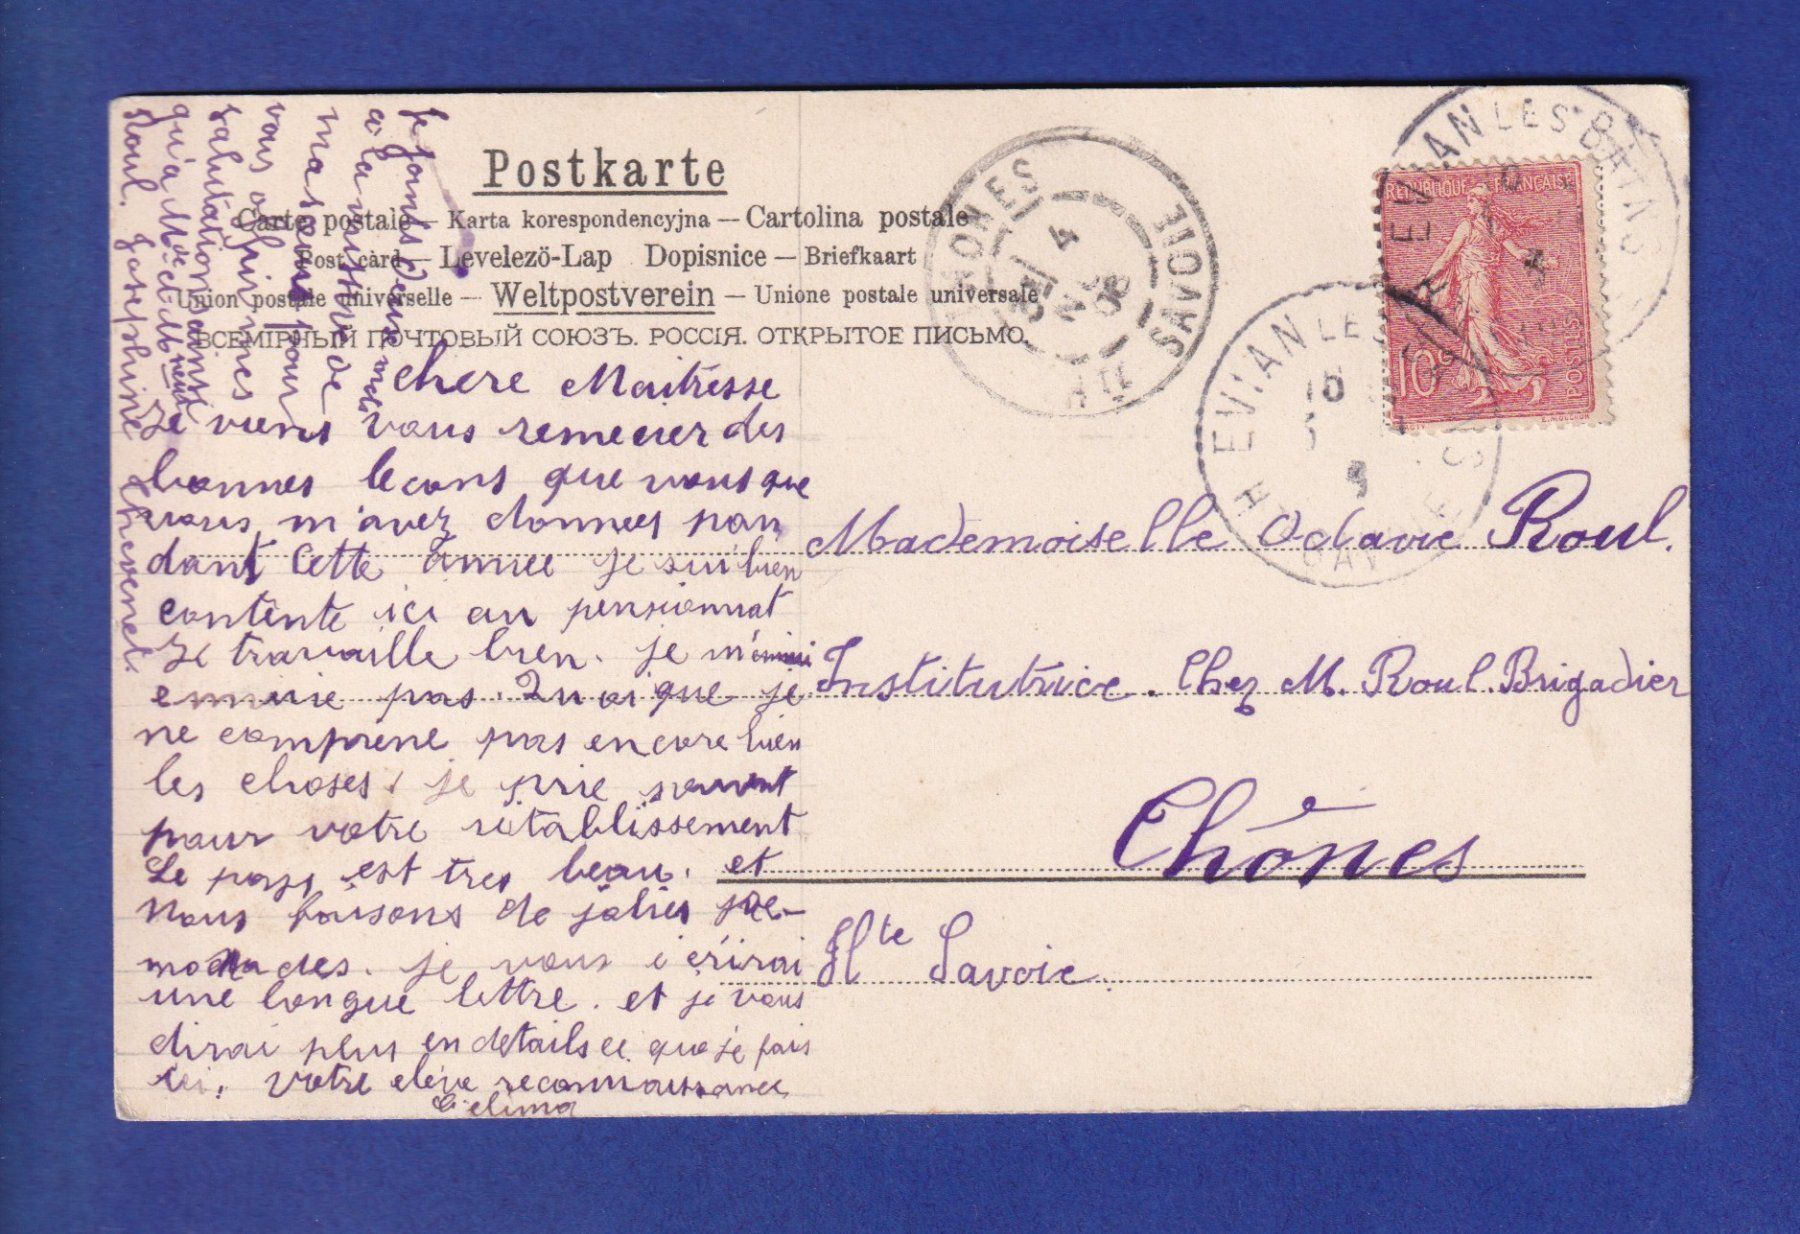 Postkarte
Carte postale — Karta korespondencyjna — Cartolina postale
Post card — Levelezö-Lap Dopisnice — Briefkaart
Union postale universelle — Weltpostverein — Unione postale universale
ВСЕМІРНЫЙ ПОЧТОВЫЙ СОЮЗЪ. РОССІЯ. ОТКРЫТОЕ ПИСЬМО.
chere Maitresse
Je viens vous remecier des
bonnes lecons que vous que
vous m'avez donnees pan
dant cette annee je sui bien
contente ici au pensionnat
Je travaille bien. je m'
ennuie pas. Quoi que je
ne comprene pas encore bien
les choses. je prie souvent
pour votre rétablissement
Le pays est tres beau. et
nous faisons de jolies
je vous
une longue lettre. et je vous
dirai plus en details ce que je fais
ici. Votre elève reconnaissance
Celima
je joints deux mots
a la votre de
ma soeur pour
vous offrir mes
salutations ainsi
qu'a Mme et Mr
Roul. Josephine Thevenet.
THONES
4
08
HTE SAVOIE
EVIAN LES BAINS
EVIAN LES
HTE SAVOIE
REPUBLIQUE FRANÇAISE
10c
POSTES
Mademoiselle Octavie Roul.
Institutrice. Chez M. Roul. Brigadier
Thônes
Hte Savoie.